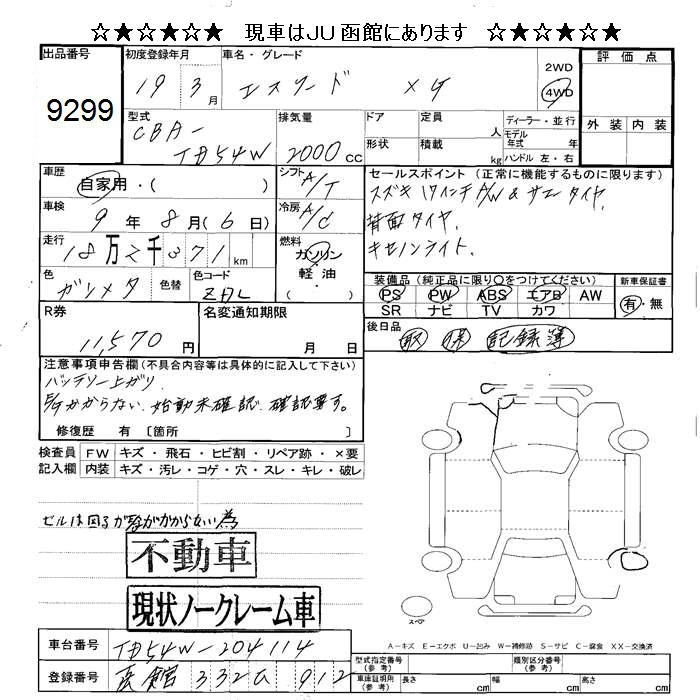 ☆★☆★☆ 現車はJU函館にあります ☆★☆★☆
出品番号
9299
初度登録年月
19 3月
車名・グレード
エスクード ×ケ
2WD
4WD
評価点
外装 内装
型式
CBA-
TD54W
排気量
2000cc
ドア 定員 人
形状 積載 kg
ディーラー・並行
モデル年式 年
ハンドル 左・右
車歴
自家用・( )
シフト
A/T
車検
9年8月(6日)
冷房
A/C
走行
18万2千371km
燃料
ガソリン
軽油
( )
色
ガンメタ
色替
色コード
ZAL
R券
11,570円
名変通知期限
月 日
セールスポイント (正常に機能するものに限ります)
スズキ17インチA/W & サマータイヤ、
背面タイヤ、
キセノンライト、
装備品 (純正品に限り○をつけてください)
PS PW ABS エアB AW
SR ナビ TV カワ
新車保証書
有・無
後日品
取 保 記録簿
注意事項申告欄 (不具合内容等は具体的に記入して下さい)
バッテリー上がり、
E/Gかからない、始動未確認、確認要す。
修復歴 有 〔箇所 〕
検査員記入欄
FW キズ・飛石・ヒビ割・リペア跡・×要
内装 キズ・汚レ・コゲ・穴・スレ・キレ・破レ
セルは回るが Eがかからない為
不動車
現状ノークレーム車
車台番号
TD54W-204114
登録番号
函館 332 912
スペア
A-キズ E-エクボ U-凹み W-補修跡 S-サビ C-腐食 XX-交換済
型式指定番号(参考)
類別区分番号(参考)
車庫証明用(参考) 長さ cm 幅 cm 高さ cm